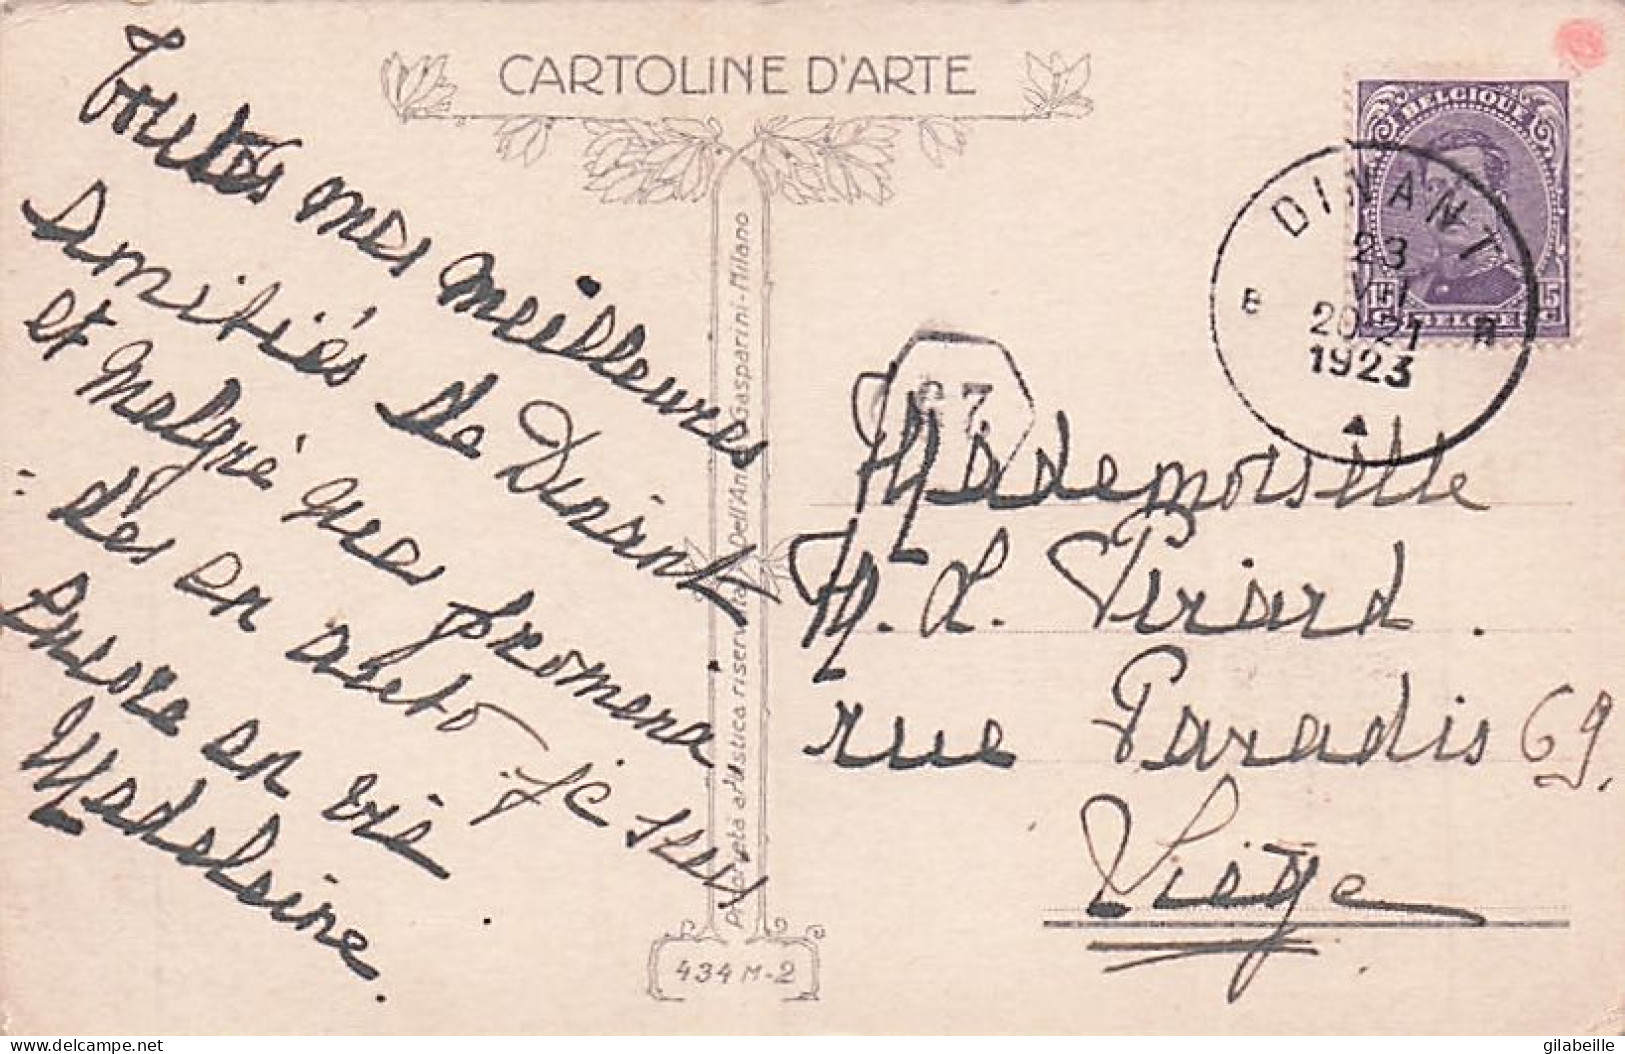 CARTOLINE D'ARTE
Toutes mes meilleures
amitiés de Dinant
et malgré mes promena
des en auto je suis
encore en vie
Madeleine.
Proprietà artistica riservata Dell'An Gasparini-Milano
434 M-2
BELGIQUE
15
15
C. BELGIE C.
DINANT
23
VII
20-21
1923
B
Mademoiselle
M. L. Pirard.
rue Paradis 69.
Liège
delcampe.net
gilabeille